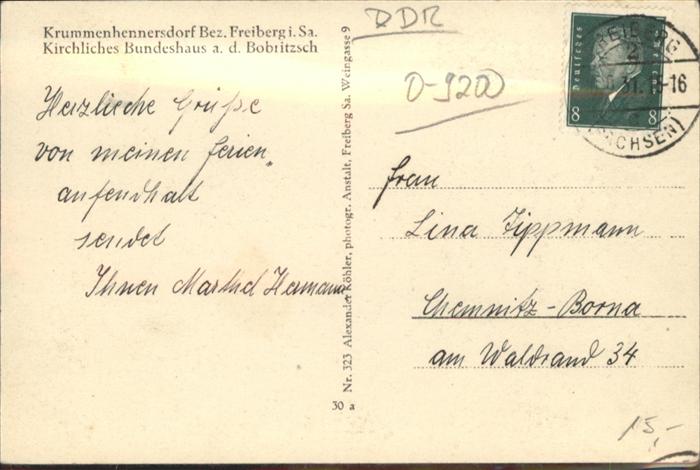 Krummenhennersdorf Bez. Freiberg i. Sa.
Kirchliches Bundeshaus a. d. Bobritzsch
Herzliche Grüße
von meinen Ferien„
aufendhalt
sendet
Ihnen Marthel Hermann
Nr. 323 Alexander Köhler, photogr. Anstalt, Freiberg Sa. Weingasse 9
30 a
DDR
O-9200
FREIBERG
(SACHSEN)
31.
-16
Deutsches
Reich
8 8
Frau
Lina Zippmann
Chemnitz-Borna
am Waldrand 34
15,-